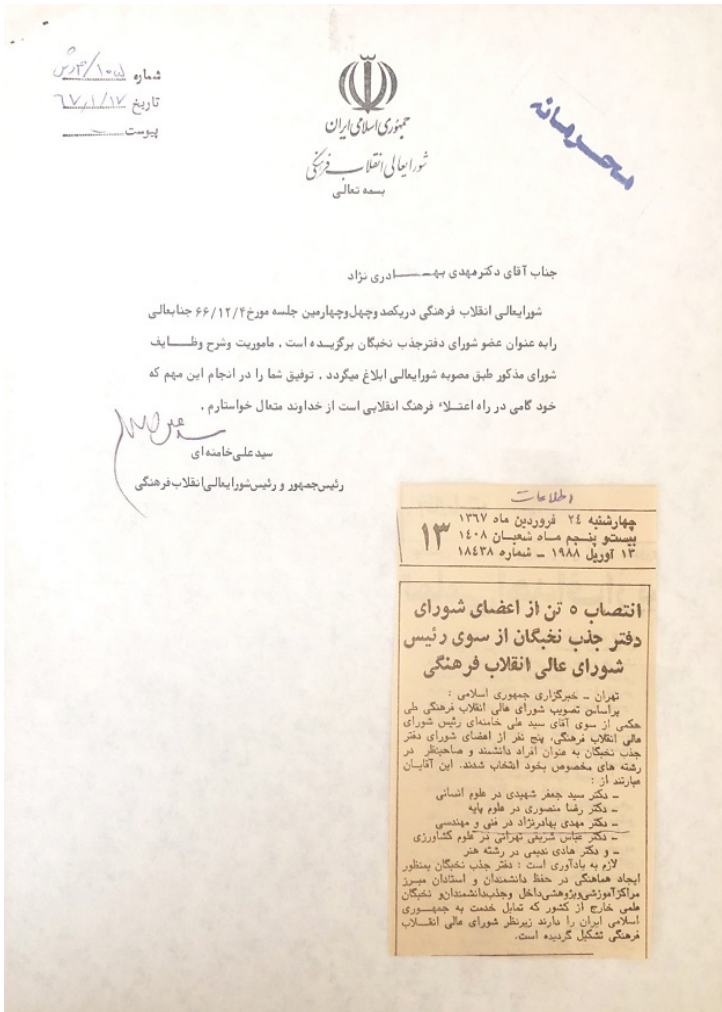 شماره
تاریخ ۶۷/۱/۱۷
پیوست
جمهوری اسلامی ایران
شورایعالی انقلاب فرهنگی
بسمه تعالی
محرمانه
جناب آقای دکتر مهدی بهـــادری نژاد
شورایعالی انقلاب فرهنگی دریکصد وچهل وچهارمین جلسه مورخ ۶۶/۱۲/۴ جنابعالی
رابه عنوان عضو شورای دفترجذب نخبگان برگزیده است . ماموریت وشرح وظـــایف
شورای مذکور طبق مصوبه شورایعالی ابلاغ میگردد . توفیق شما را در انجام این مهم که
خود گامی در راه اعتـلاء فرهنگ انقلابی است از خداوند متعال خواستارم .
سیدعلی خامنه ای
رئیس جمهور و رئیس شورایعالی انقلاب فرهنگی
اطلاعات
چهارشنبه ۲٤ فروردین ماه ۱۳٦۷
بیست‌و پنجم مـاه شعبـان ۱٤۰۸
۱۳ آوریل ۱۹۸۸ – شماره ۱۸٤۳۸
۱۳
انتصاب ٥ تن از اعضای شورای
دفتر جذب نخبگان از سوی رئیس
شورای عالی انقلاب فرهنگی
تهران – خبرگزاری جمهوری اسلامی :
براساس تصویب شورای عالی انقلاب فرهنگی طی
حکمی از سوی آقای سید علی خامنه‌ای رئیس شورای
عالی انقلاب فرهنگی، پنج نفر از اعضای شورای دفتر
جذب نخبگان به عنوان افراد دانشمند و صاحبنظر در
رشته های مخصوص بخود انتخاب شدند. این آقایـان
عبارتند از :
– دکتر سید جعفر شهیدی در علوم انسانی
– دکتر رضا منصوری در علوم پایه
– دکتر مهدی بهادرنژاد در فنی و مهندسی
– دکتر عباس شریفی تهرانی در علوم کشاورزی
– و دکتر هادی ندیمی در رشته هنر
لازم به یادآوری است : دفتر جذب نخبگان بمنظور
ایجاد هماهنگی در حفظ دانشمندان و استادان مبـرز
مراکزآموزشی‌وپژوهشی‌داخل وجذب‌دانشمندان‌و نخبگان
علمی خارج از کشور که تمایل خدمت به جمهــوری
اسلامی ایران را دارند زیرنظر شورای عالی انقــلاب
فرهنگی تشکیل گردیده است.